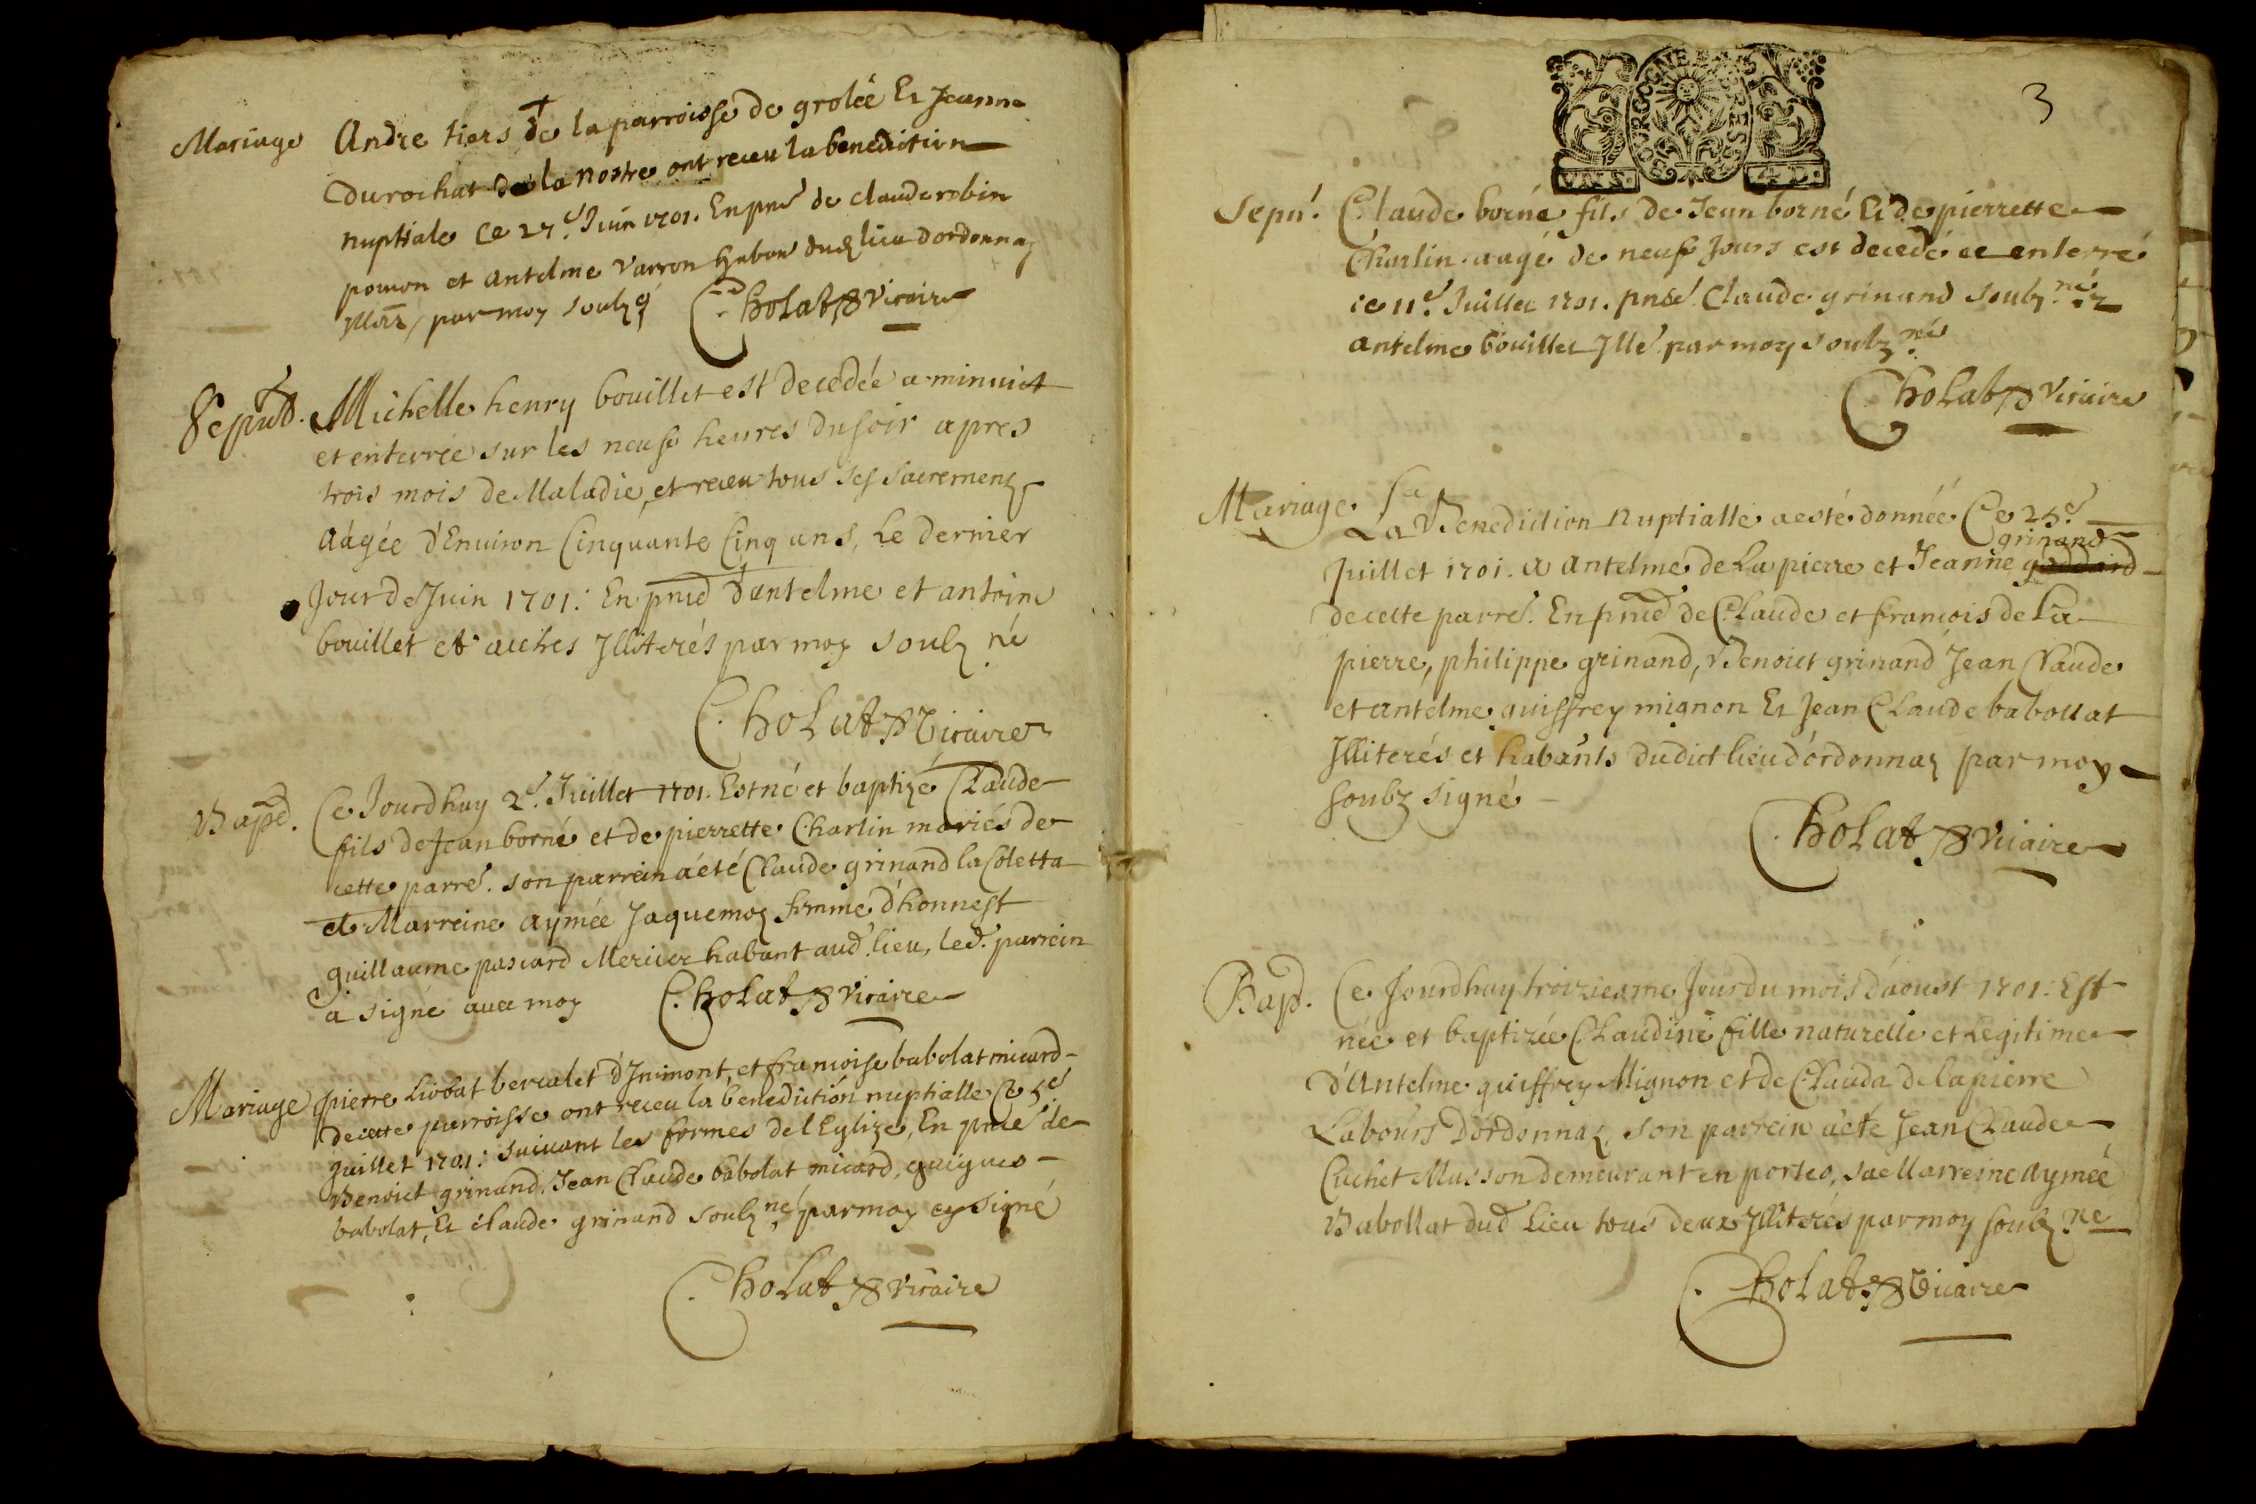 Mariage Andre tiers de la parroisse de grolée Et Jeanne
Durochat de la nostre ont receu la benediction
nuptiale Ce 27e Juin 1701. En pnce de claude robin
pomon et antelme varron habns dudz lieu d'ordonnaz
par moy soubz
C. hoLat vicaire
Sepult. Michelle henry bouillet est decedée a minuict
et enterrée sur les neuf heures du soir apres
trois mois de Maladie, et receu tous ses sacremenz
aâgée d'Environ Cinquante Cinq ans, Le dernier
Jour de Juin 1701. En pnce d'antelme et antoine
bouillet et aultres Illiterés par moy soubz né
C. hoLat Vicaire
Bapt. Ce Jourdhuy 2e Juillet 1701. Est né et baptizé Claude
fils de Jean borné et de pierrette Charlin mariés de
cette parre. son parrein a été Claude grinand la Coletta
et Marreine aymée Jaquemoz femme d'honnest
guillaume pascard Mercier habant aud. lieu, led. parrein
a signé avec moy C. hoLat vicaire
Mariage pierre Liobat bercalet d'Inimont, et francoise babolat micard
de cette parroisse ont receu la benediction nuptialle Ce 5e
Juillet 1701: suivant les formes de l'Eglize, En pnce de
Benoict grinand, Jean Claude babolat micard, guigues
babolat, Et claude grinand soubz né par moy sy signé
C. hoLat vicaire
3
BOURGOGNE
VN.S. 4.D.
Sepu. Claude borné fils de Jean borné Et de pierrette
Charlin aagé de neuf Jours est decedé et enterré
ce 11e Juillet 1701. pnce Claude grinand soubz né
antelme bouillet Ille par moy soubz né
C. hoLat vicaire
Mariage. La Benediction Nuptialle a esté donnée Ce 25e
grinand
Juillet 1701. a antelme de La pierre et Jeanne goddard
de cette parre. En pnce de Claude et francois de La
pierre, philippe grinand, Benoict grinand Jean Claude
et antelme guiffrey mignon Et Jean Claude babollat
Illiterés et habants dudict lieu d'ordonnaz par moy
soubz signé
C. hoLat vicaire
Bap. Ce Jourdhuy troizieame Jour du mois d'aoust 1701. Est
née et baptizée Claudine fille naturelle et Legitime
d'Antelme guiffrey Mignon et de Clauda de lapierre
Labours D'ordonnaz, son parrein a eté Jean Claude
Cuchet Musson demeurant en portes, sa Marreine aymée
Babollat dud Lieu tous deux Illiterés par moy soubz né
C. hoLat Vicaire